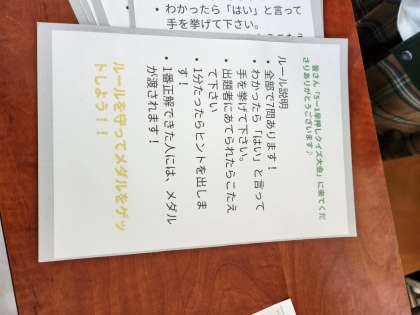 ・わかったら「はい」と言って
手を挙げて下さい。
皆さん「5ー1早押しクイズ大会」に来てくだ
さりありがとうございます♪
ルール説明
・全部で7問あります！
・わかったら「はい」と言って
手を挙げて下さい。
・出題者にあてられたらこたえ
て下さい
・1分たったらヒントを出しま
す！
・1番正解できた人には、メダル
が渡されます！
ルールを守ってメダルをゲッ
トしよう！！